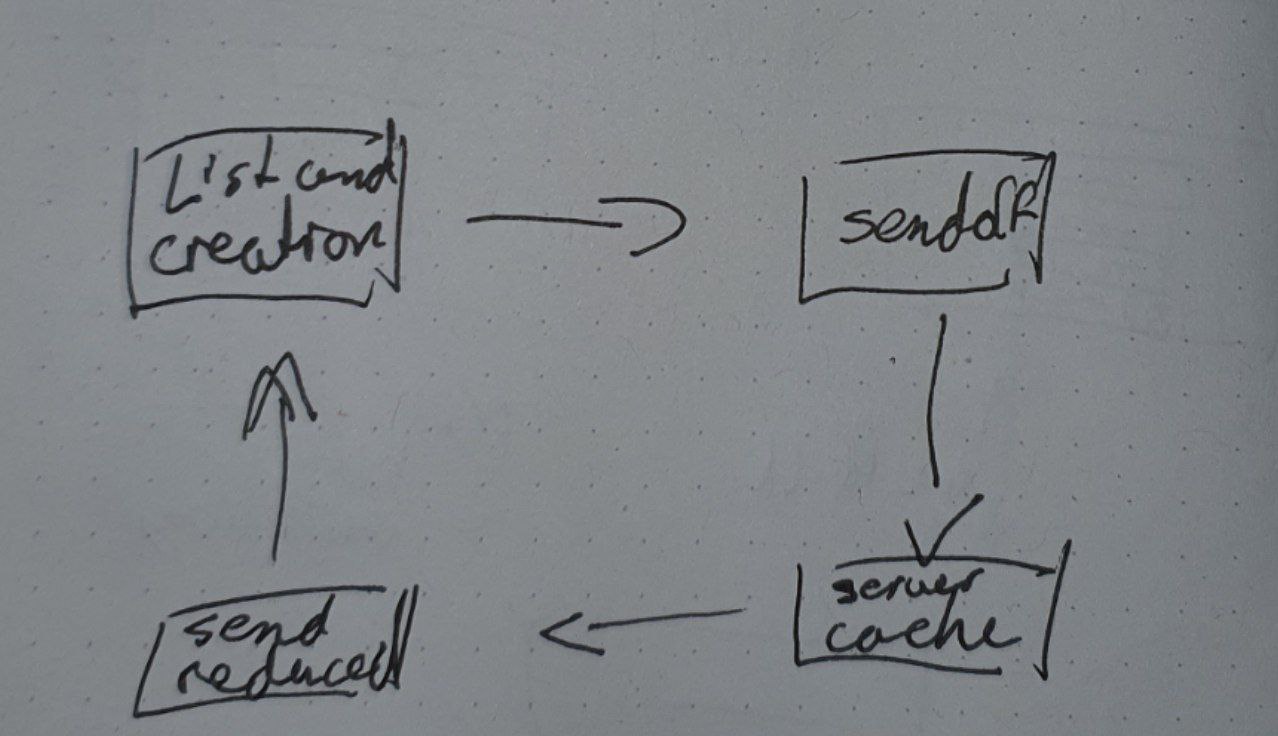 List and
creation
send off
server
cache
send
reduced